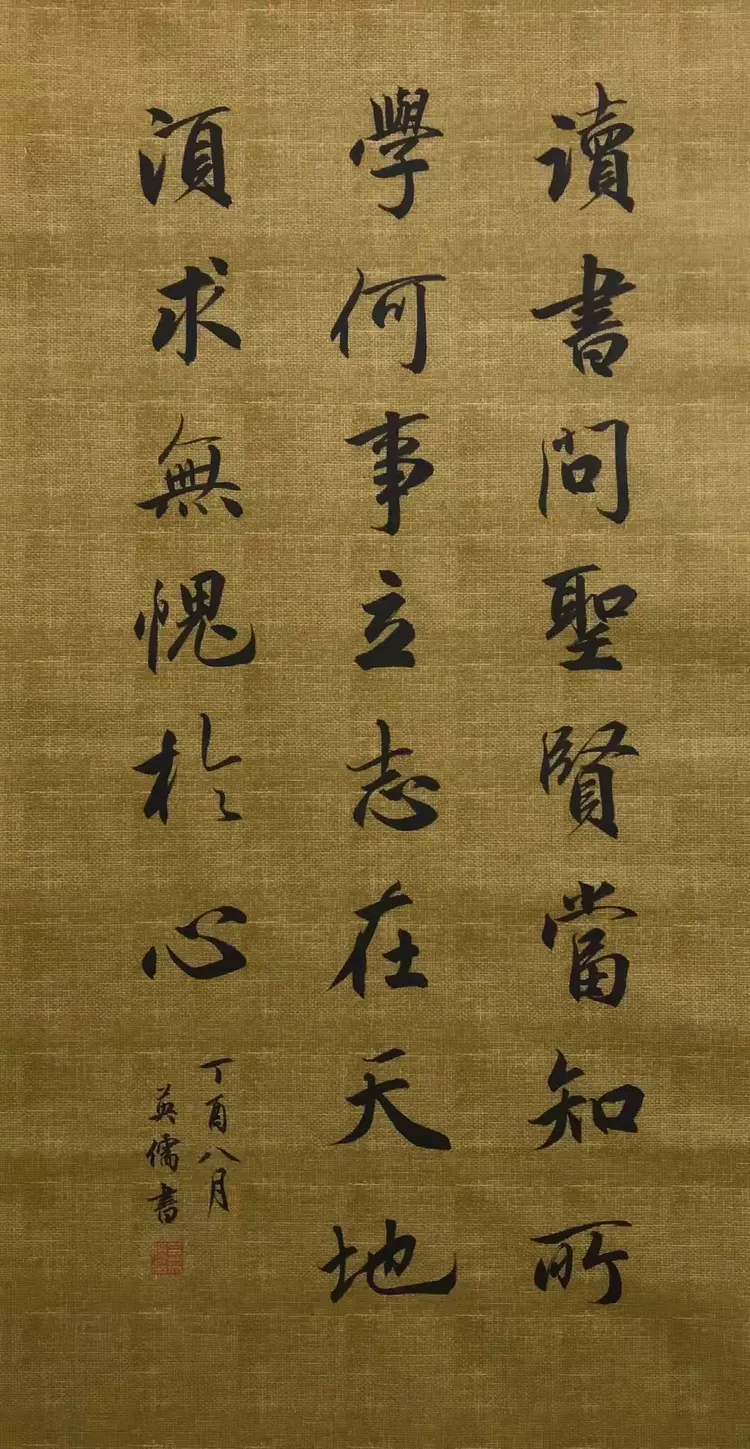 讀書問聖賢當知所
學何事立志在天地
須求無愧於心
丁酉八月
英儒書